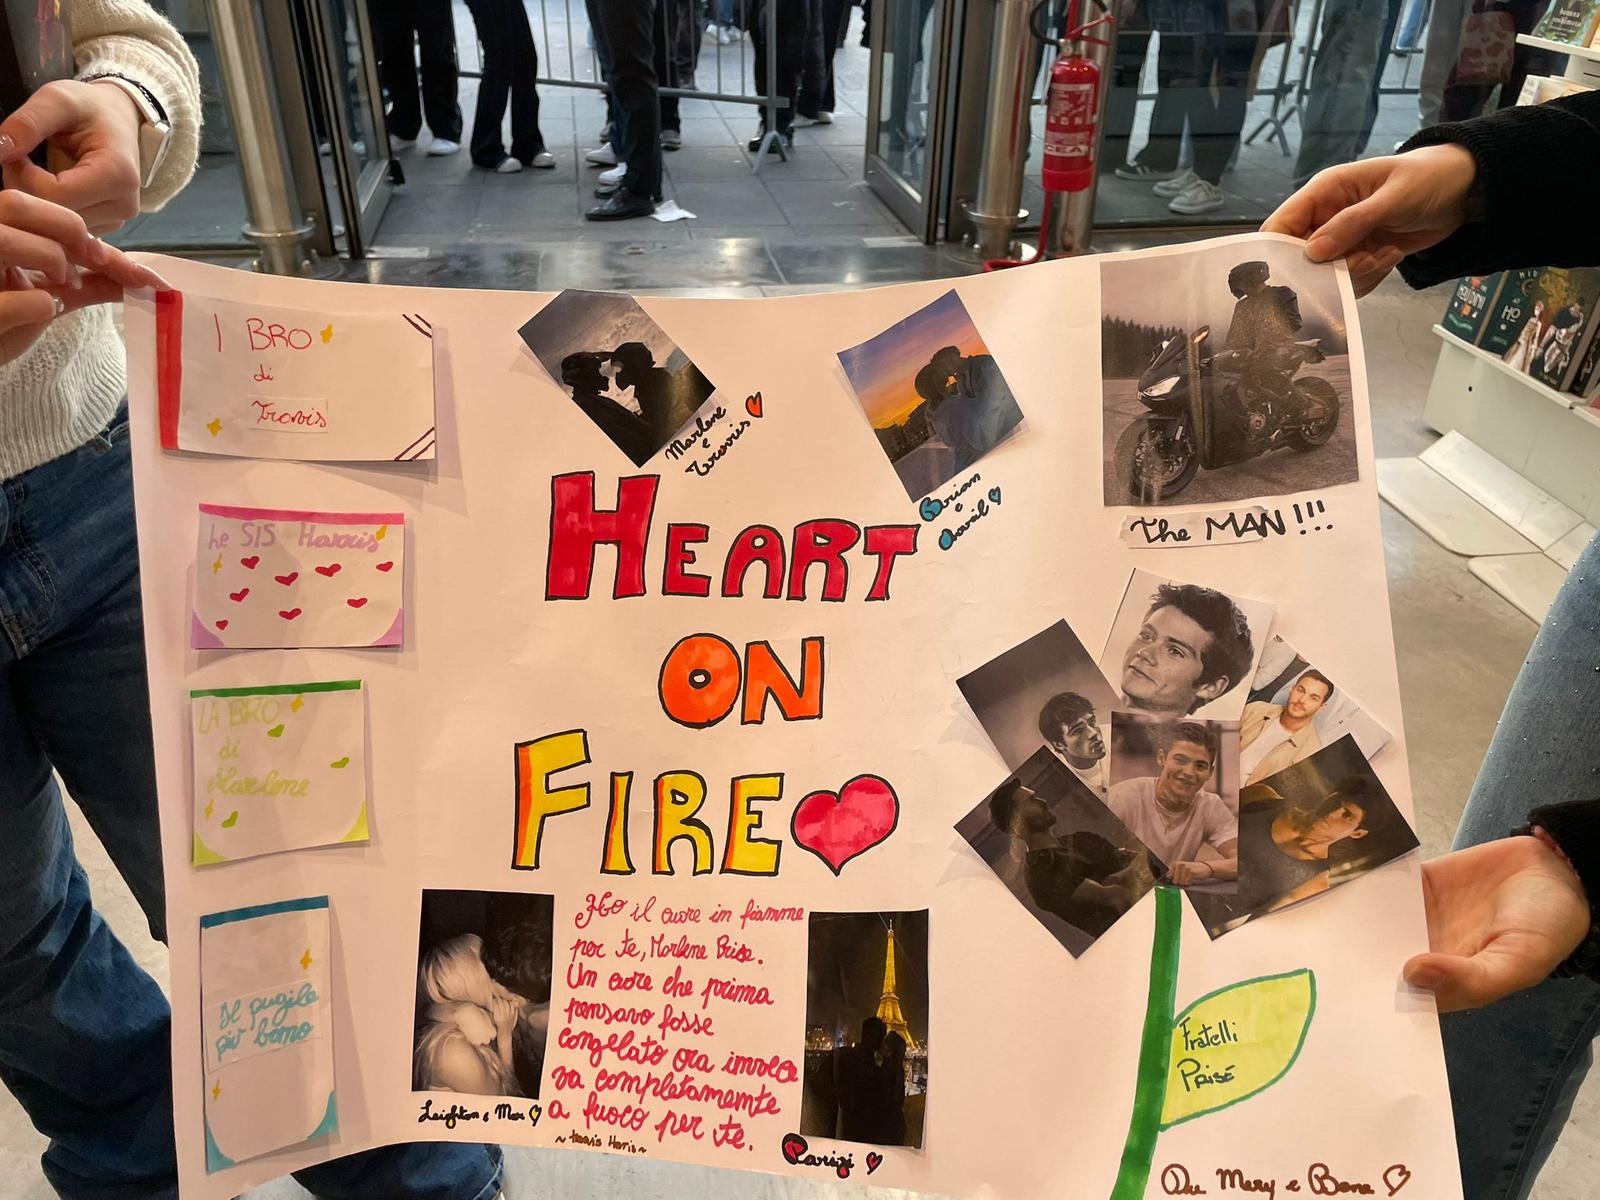 I BRO
di
Travis
Le SIS Harris
LA BRO
di
Marlene
Il pugile
più bono
Marlene
e
Travis
Brian
e
Avril
The MAN!!!
HEART
ON
FIRE
Ho il cuore in fiamme
per te, Marlene Prise.
Un cuore che prima
pensavo fosse
congelato ora invece
va completamente
a fuoco per te.
~ Travis Harris ~
Leighton e Mar
Parigi
Fratelli
Prisé
Mery e Bona
CEA